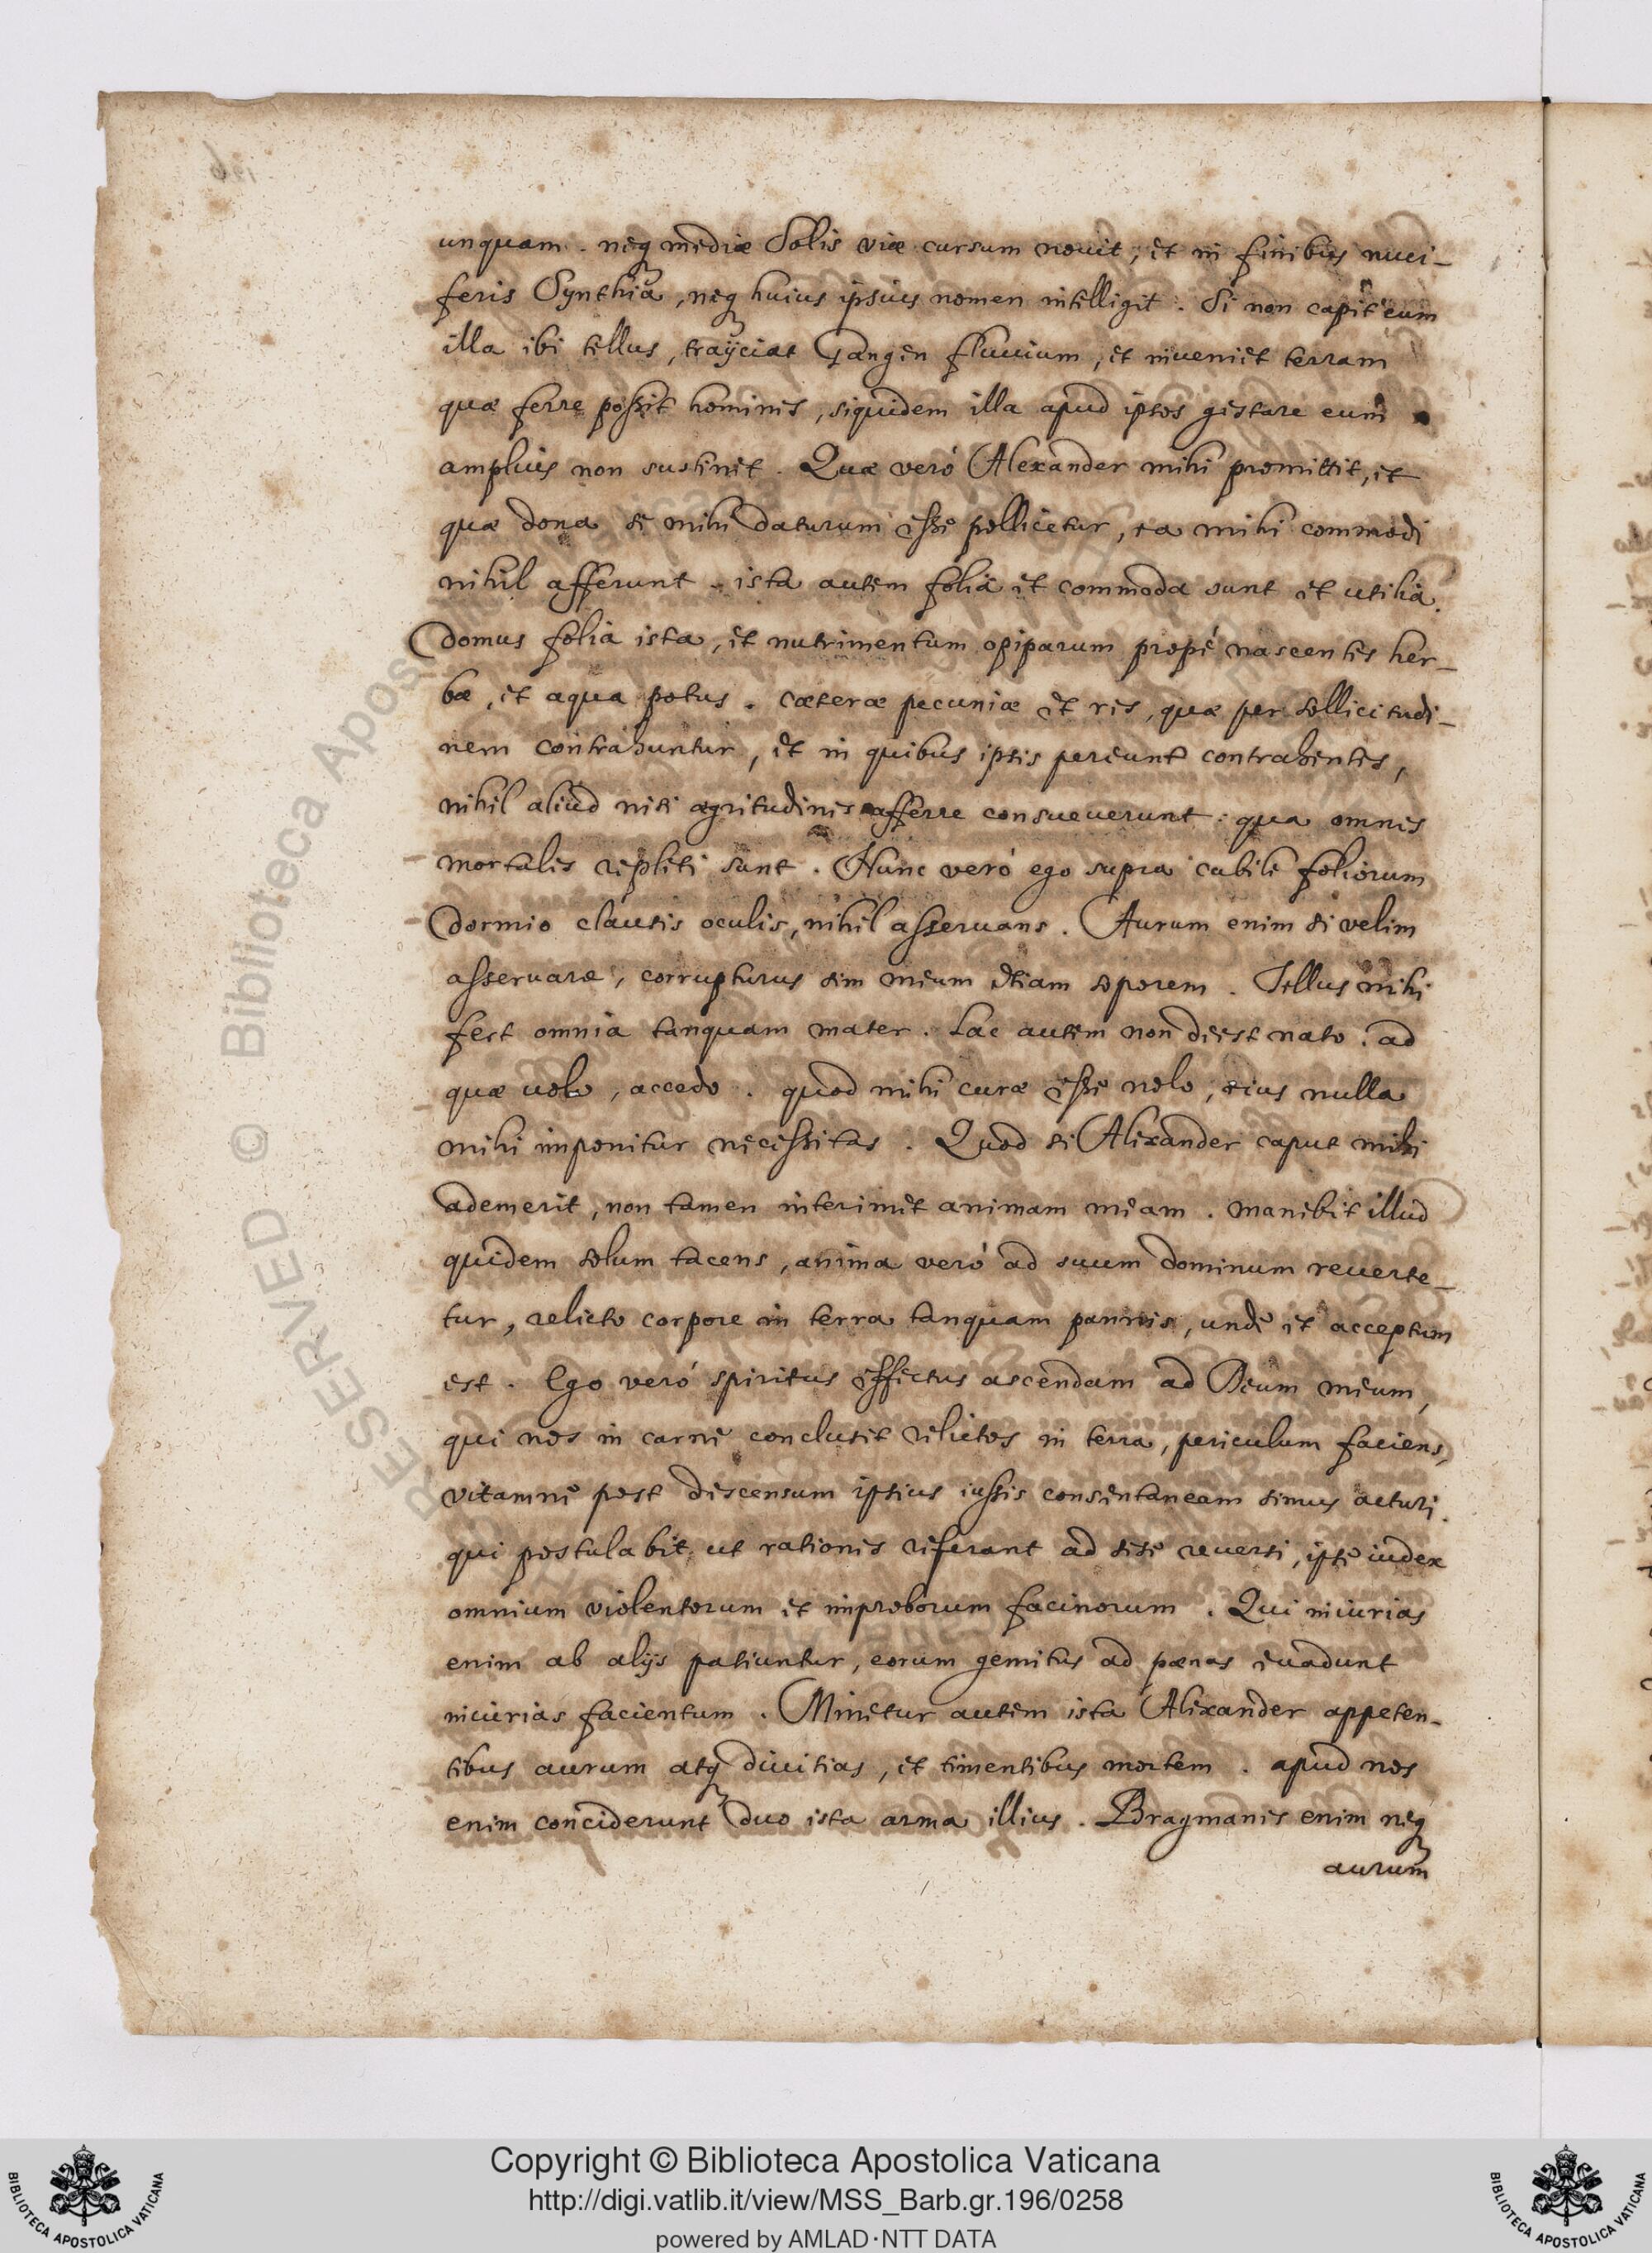 unquam. neq mediæ Solis viæ cursum nouit, et in finibus nuci-
feris Synthia, neq huius ipsius nomen intelligit. Si non capit eum
illa ibi tellus, traÿciat Gangen fluuium, et inueniet terram
quæ ferre possit homines, siquidem illa apud ipsos gestare eum
amplius non sustinet. Quæ veró Alexander mihi promittit, et
quæ dona se mihi daturum esse pollicetur, ea mihi commodi
nihil afferunt. ista autem folia et commoda sunt et utilia.
Domus folia ista, et nutrimentum opiparum propé nascentes her-
bæ, et aqua potus. cæteræ pecuniæ et res, quæ per sollicitudi-
nem contrahuntur, et in quibus ipsis pereunt contrahentes,
nihil aliud nisi ægritudines afferre consueuerunt: qua omnes
mortales repleti sunt. Nunc veró ego supra cubile foliorum
dormio clausis oculis, nihil asseruans. Aurum enim si velim
asseruare, corrupturus sim meum etiam soporem. Tellus mihi
fert omnia tanquam mater. Lac autem non deest nato. ad
quæ uolo, accedo. quod mihi curæ esse nolo, eius nulla
mihi imponitur necessitas. Quod si Alexander caput mihi
ademerit, non tamen interimet animam meam. manebit illud
quidem solum tacens, anima veró ad suum dominum reuerte-
tur, relicto corpore in terra tanquam pannis, unde et acceptum
est. Ego veró spiritus effectus ascendam ad Deum meum,
qui nos in carne conclusit relictos in terra, periculum faciens,
vitamne post descensum ipsius iussis consentaneam simus acturi.
qui postulabit, ut rationes referant ad sese reuersi, ipse iudex
omnium violentorum et improborum facinorum. Qui iniurias
enim ab alÿs patiuntur, eorum gemitus ad pænas euadunt
iniurias facientum. Minetur autem ista Alexander appeten-
tibus aurum atq diuitias, et timentibus mortem. apud nos
enim conciderunt duo ista arma illius. Bragmanes enim neq
aurum
RESERVED © Biblioteca Apos
Copyright © Biblioteca Apostolica Vaticana
http://digi.vatlib.it/view/MSS_Barb.gr.196/0258
powered by AMLAD·NTT DATA
BIBLIOTECA APOSTOLICA VATICANA
BIBLIOTECA APOSTOLICA VATICANA